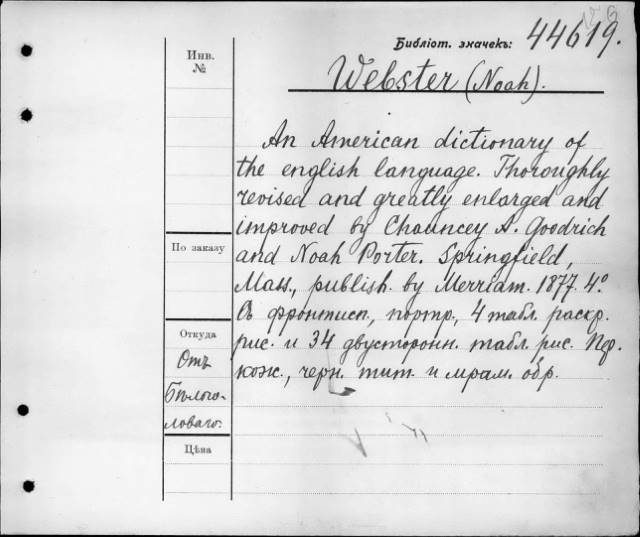 Библіот. значекъ: 44619.
Инв.
№
Webster (Noah).
An American dictionary of
the english language. Thoroughly
revised and greatly enlarged and
improved by Chauncey A. Goodrich
and Noah Porter. Springfield,
Mass., publish. by Merriam. 1877. 4°.
Съ фронтисп., портр., 4 табл. раскр.
рис. и 34 двусторонн. табл. рис. Пер.
кож., черн. тит. и мрам. обр.
По заказу
Откуда
Отъ
Бѣлого-
ловаго.
Цѣна